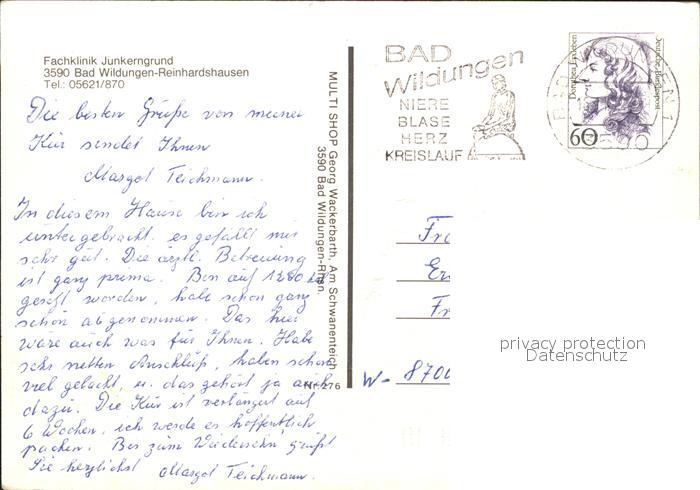 Fachklinik Junkerngrund
3590 Bad Wildungen-Reinhardshausen
Tel.: 05621/870
Die besten Grüße von meiner
Kur sendet Ihnen
Margot Teichmann.
In diesem Hause bin ich
untergebracht. es gefällt mir
sehr gut. Die ärztl. Betreuung
ist ganz prima. Bin auf 1200 kal.
gesetzt worden, habe schon ganz
schön abgenommen. Das hier
wäre auch was für Ihnen. Habe
sehr netten Anschluß, haben schon
viel gelacht, u. das gehört ja auch
dazu. Die Kur ist verlängert auf
6 Wochen, ich werde es hoffentlich
packen. Bis zum Wiederseh'n grüßt
Sie herzlichst Margot Teichmann.
MULTI SHOP Georg Wackerbarth, Am Schwanenteich
3590 Bad Wildungen-Rhsn.
Nr. 276
BAD
Wildungen
NIERE
BLASE
HERZ
KREISLAUF
Dorothea Erxleben
Deutsche Bundespost
60
3590
Fr
Er
Fr
W- 8700
privacy protection
Datenschutz